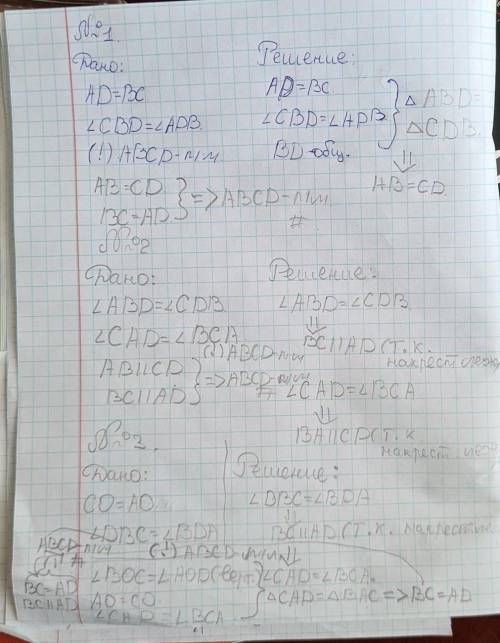 №1.
Дано:
AD=BC
∠CBD=∠ADB.
(!) ABCD-пм
Решение:
AD=BC.
∠CBD=∠ADB
BD-общ.
} △ABD=
△CDB.
⇓
AB=CD.
AB=CD.
BC=AD.
} => ABCD-пм.
#
№2
Дано:
∠ABD=∠CDB.
∠CAD=∠BCA
(!) ABCD-пм
Решение:
∠ABD=∠CDB.
⇓
BC||AD (т.к.
накрест леж
∠CAD=∠BCA
⇓
BA||CD (т.к
накрест леж
AB||CD
BC||AD
} => ABCD-пм
#
№3.
Дано:
CO=AO.
∠DBC=∠BDA
(!) ABCD-пм
Решение:
∠DBC=∠BDA
⇓
BC||AD (т.к. накрест
⇓
∠CAD=∠BCA.
∠BOC=∠AOD (верт.)
AO=CO.
∠CAD=∠BCA
} △CAD=△BAC => BC=AD
ABCD-пм
#
BC=AD
BC||AD